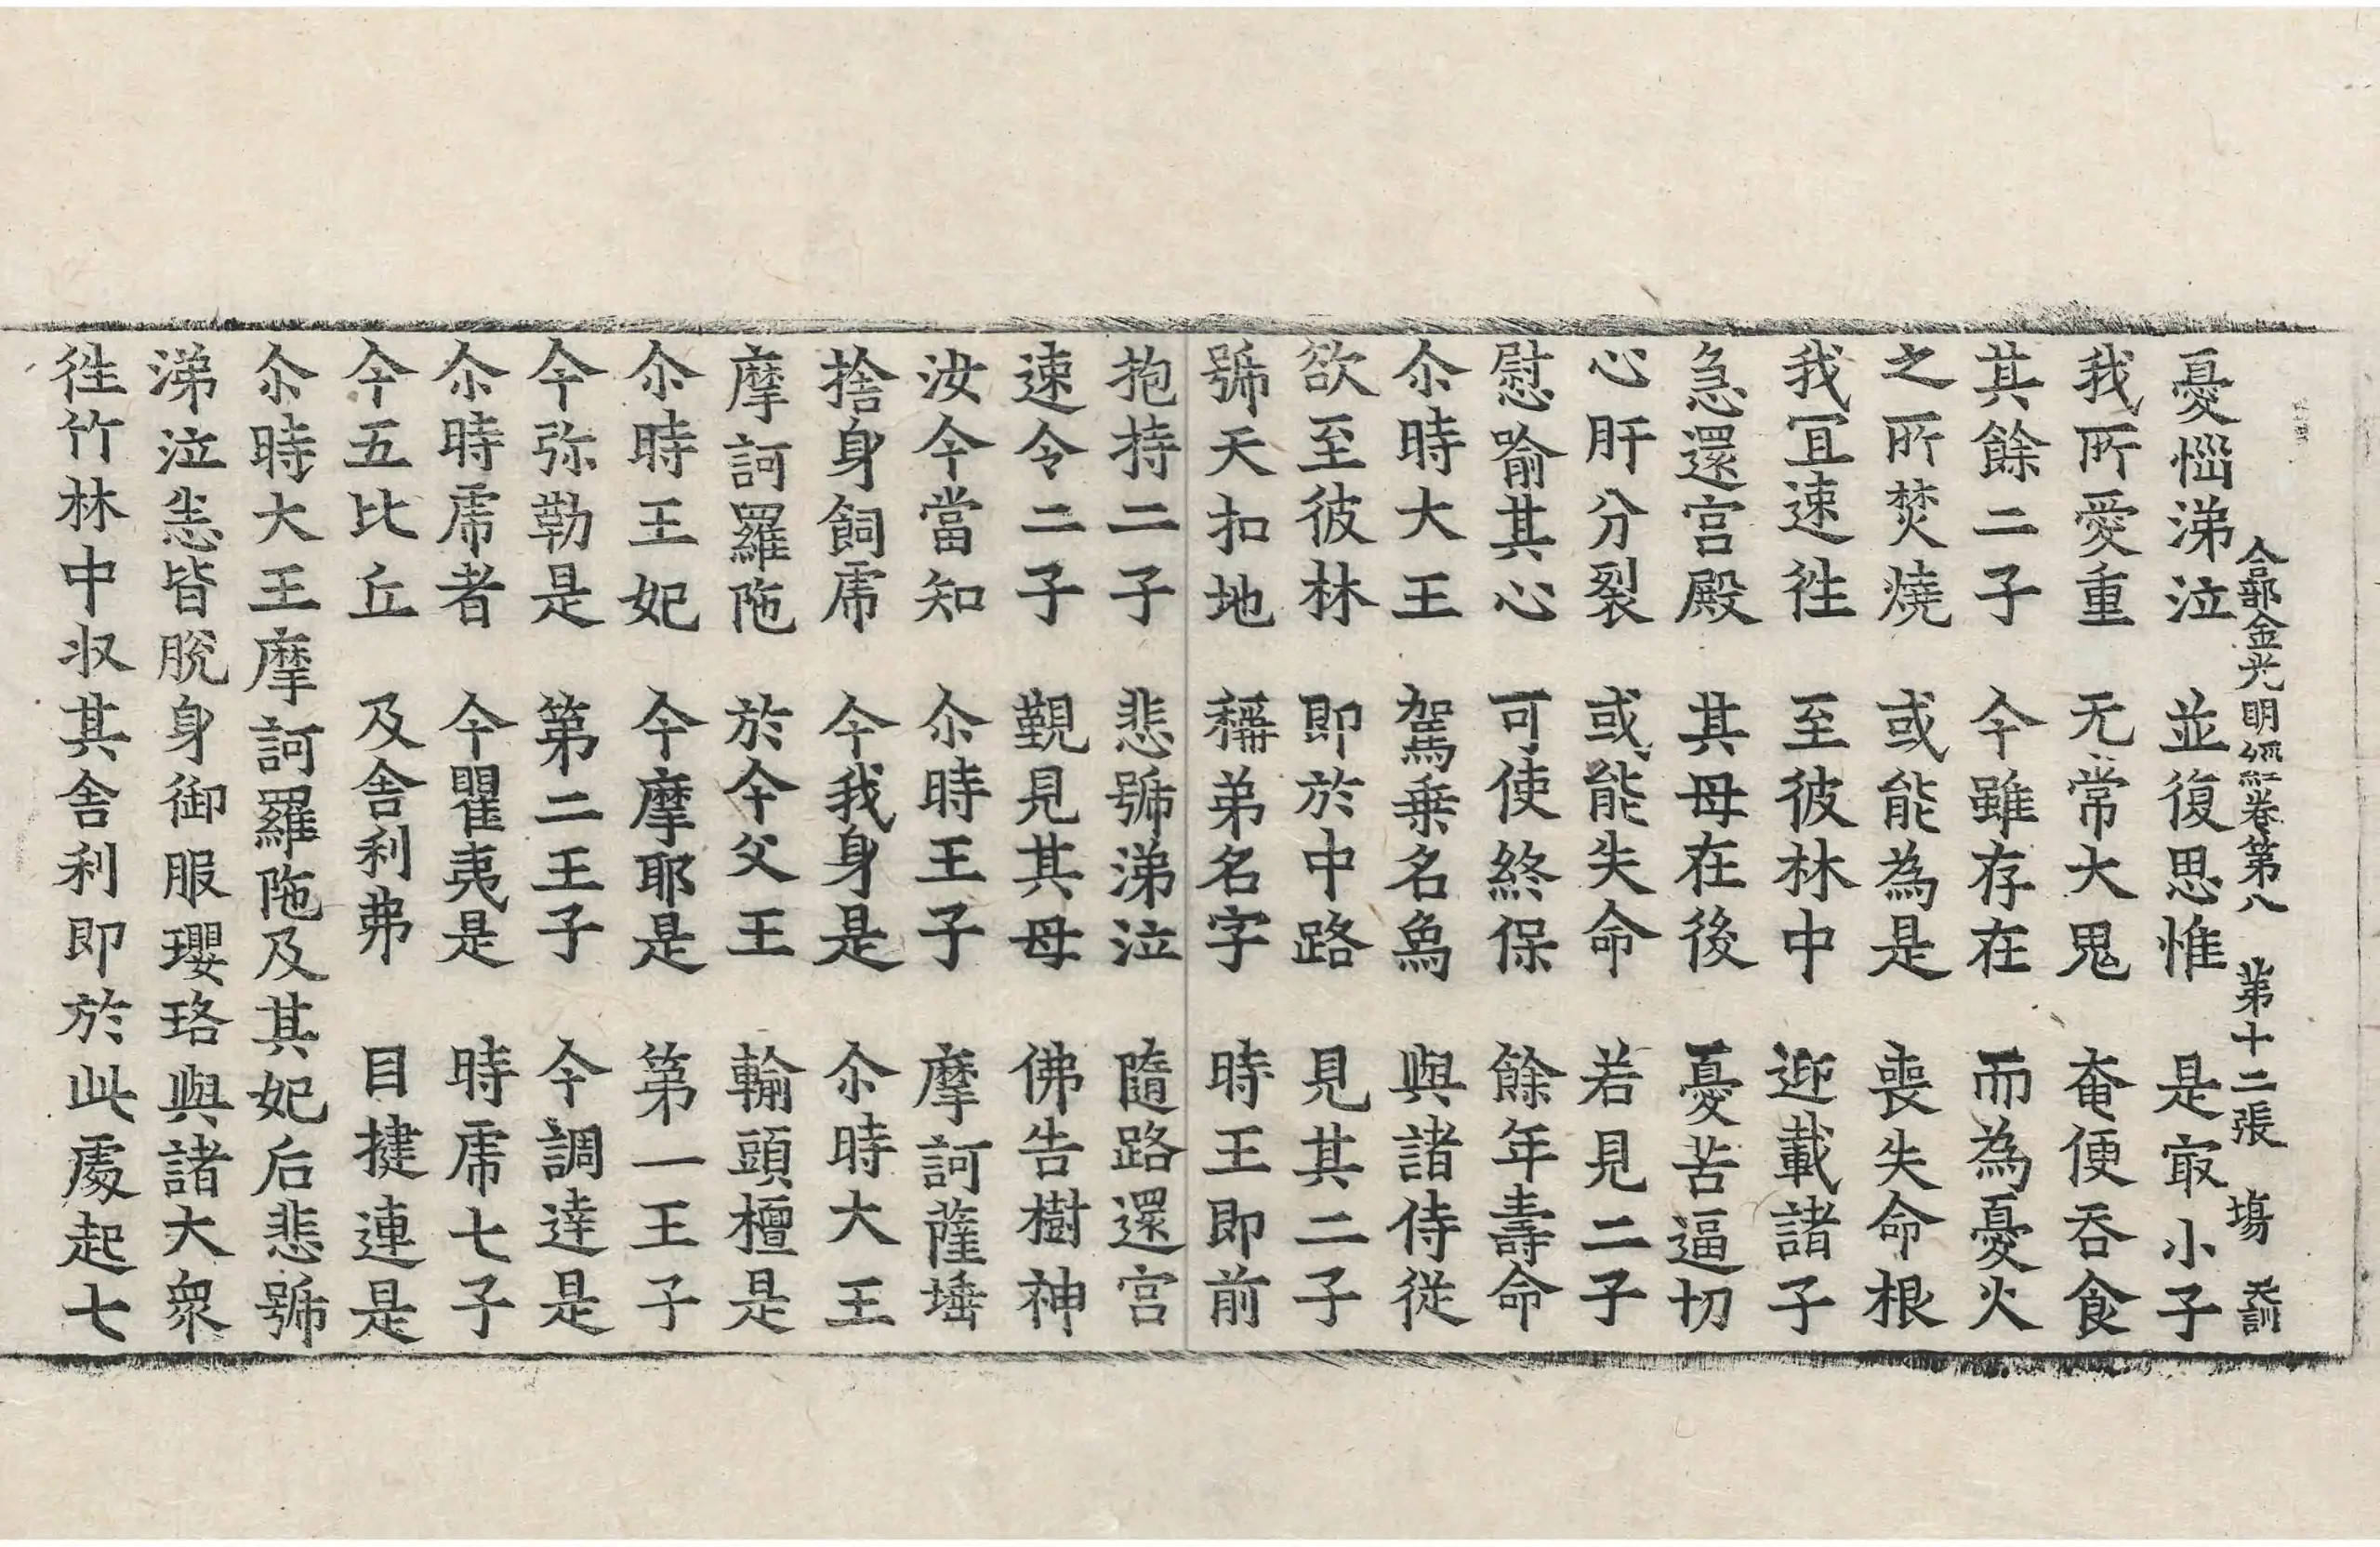 合部金光明經卷第八　第十二張　塲
憂惱涕泣　並復思惟　是㝡小子
我所愛重　无常大鬼　奄便吞食
其餘二子　今雖存在　而為憂火
之所焚燒　或能為是　喪失命根
我冝速徃　至彼林中　迎載諸子
急還宮殿　其母在後　憂苦逼切
心肝分裂　或能失命　若見二子
慰喻其心　可使終保　餘年壽命
尒時大王　駕乗名𤉢　與諸侍從
欲至彼林　即於中路　見其二子
號天扣地　稱弟名字　時王即前
抱持二子　悲號涕泣　隨路還宮
速令二子　覲見其母　佛告樹神
汝今當知　尒時王子　摩訶薩埵
捨身飼虎　今我身是　尒時大王
摩訶羅陁　於今父王　輸頭檀是
尒時王妃　今摩耶是　第一王子
今弥勒是　第二王子　今調達是
尒時虎者　今瞿夷是　時虎七子
今五比丘　及舍利弗　目揵連是
尒時大王摩訶羅陁及其妃后悲號
涕泣悉皆脫身御服瓔珞與諸大衆
徃竹林中収其舍利即於此處起七